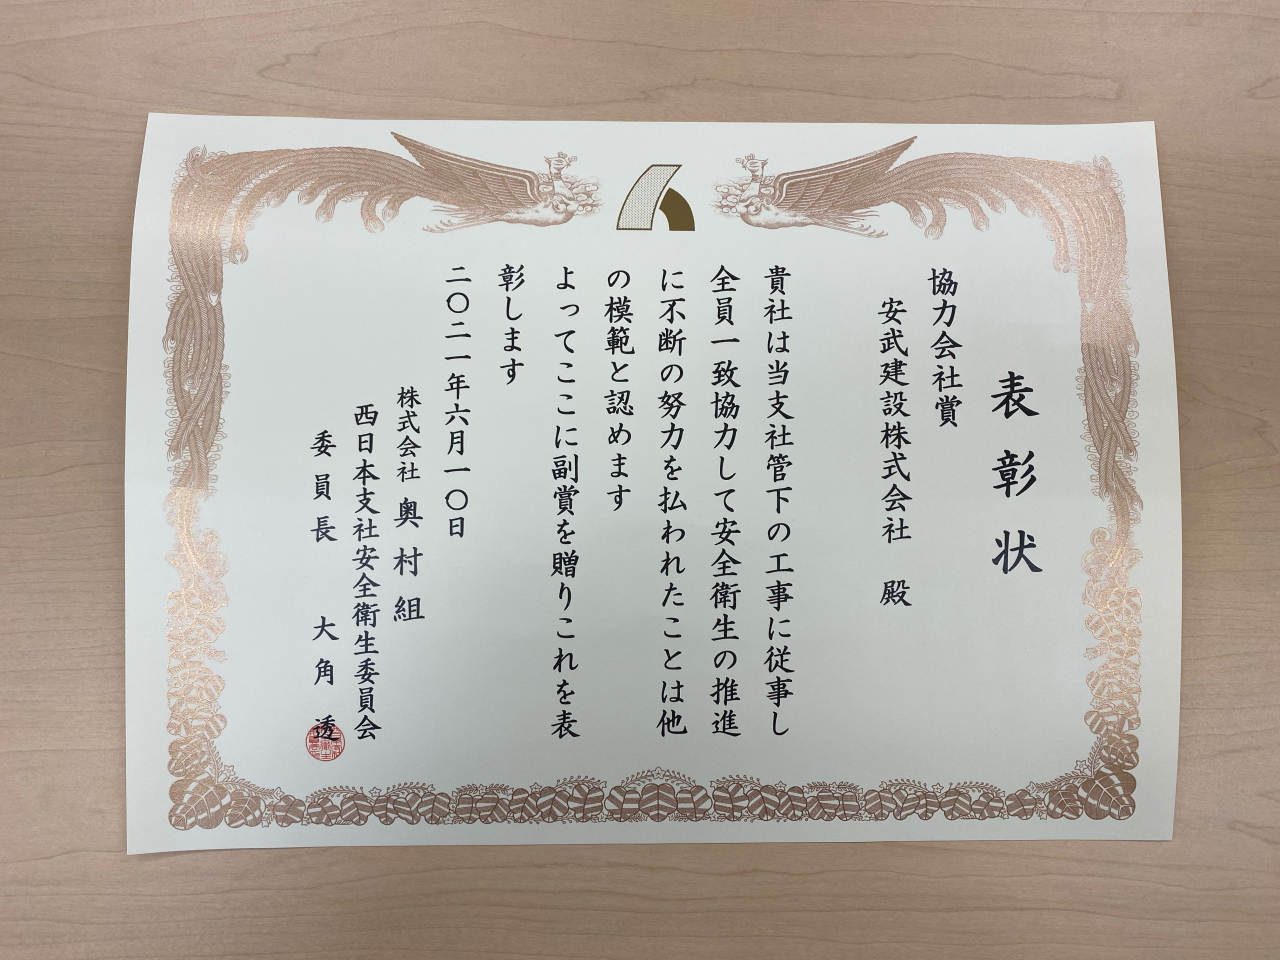 表彰状
協力会社賞
安武建設株式会社 殿
貴社は当支社管下の工事に従事し
全員一致協力して安全衛生の推進
に不断の努力を払われたことは他
の模範と認めます
よってここに副賞を贈りこれを表
彰します
二〇二一年六月一〇日
株式会社 奥村組
西日本支社安全衛生委員会
委員長 大角 透